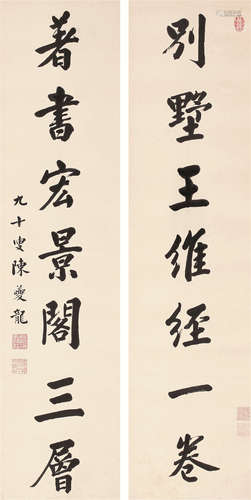 別墅王維經一卷
著書宏景閣三層
九十叟陳夔龍